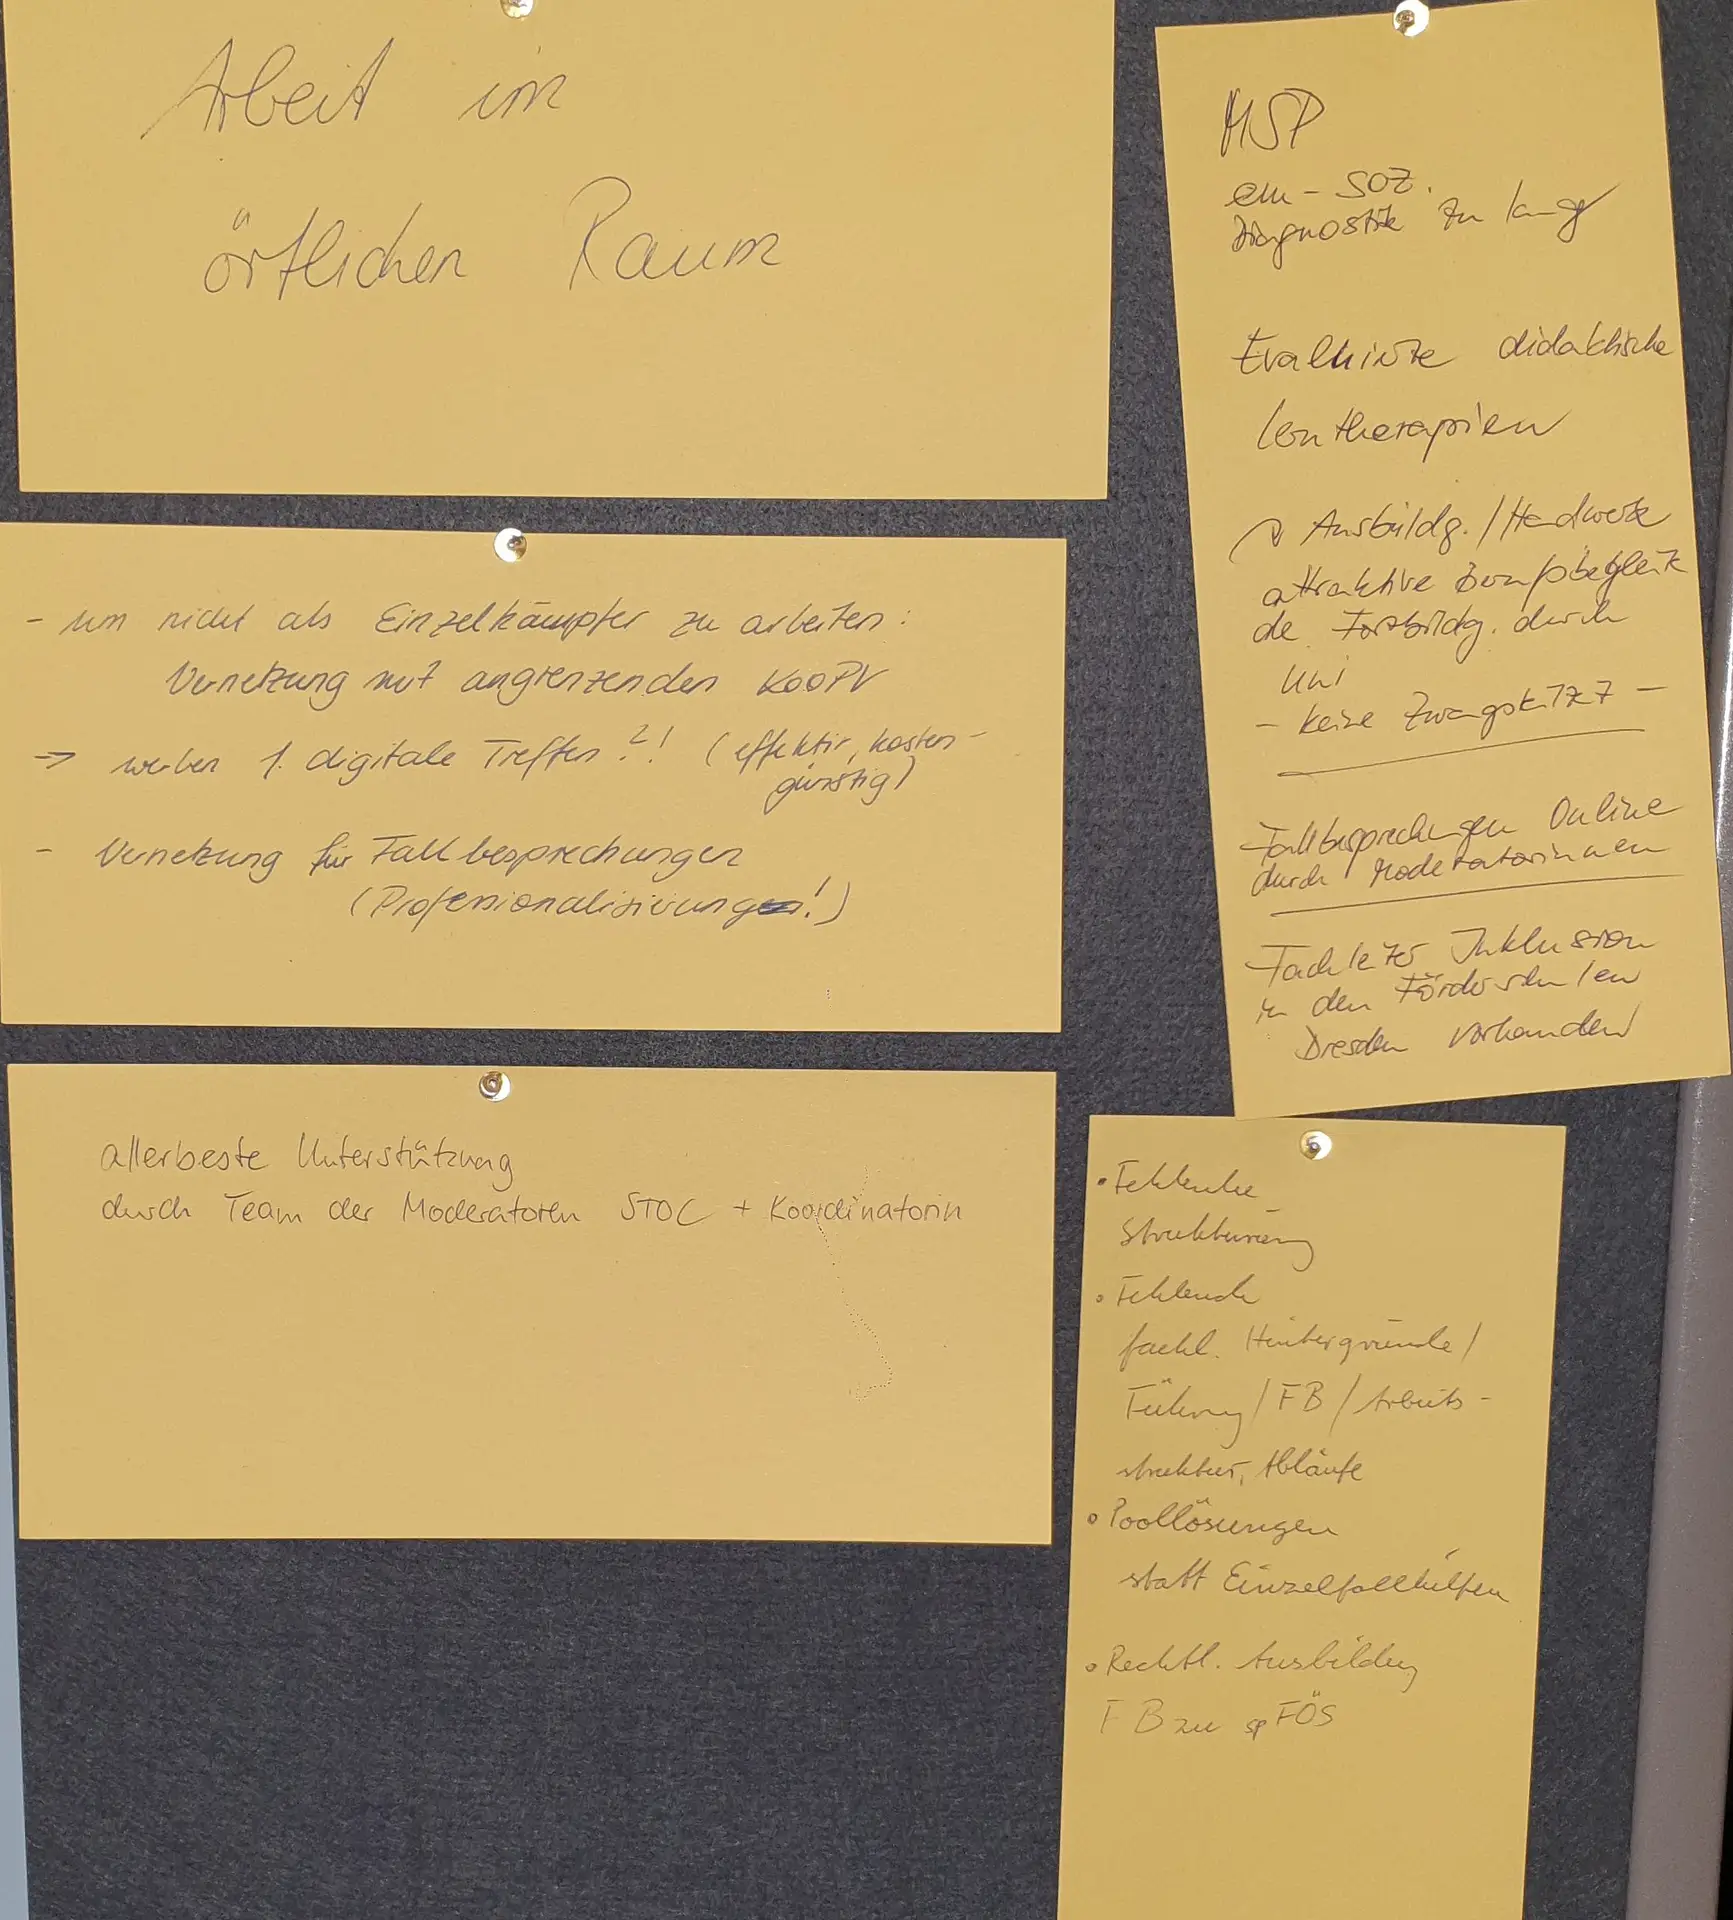 Arbeit im
örtlichen Raum
- um nicht als Einzelkämpfer zu arbeiten:
Vernetzung mit angrenzenden KOOPV
→ werben f. digitale Treffen?! (effektiv, kosten-
günstig)
- Vernetzung für Fallbesprechungen
(Professionalisierung!)
allerbeste Unterstützung
durch Team der Moderatoren STOC + Koordinatorin
MSP
em-soz.
Diagnostik zu lang
Evaluierte didaktische
Lerntherapien
Ausbildg./Handwerk
attraktive Berufsbegleit
de Fortbildg. durch
Uni
- keine -
Fallbesprechungen Online
durch Moderatorinnen
Fachleiter Inklusion
in den Förderschulen
Dresden vorhanden
• Fehlende
Strukturierung
• Fehlende
fachl. Hintergründe/
Führung/FB/Arbeits-
struktur, Abläufe
• Poollösungen
statt Einzelfallhilfen
• Rechtl. Ausbildung
FB zu spFÖS